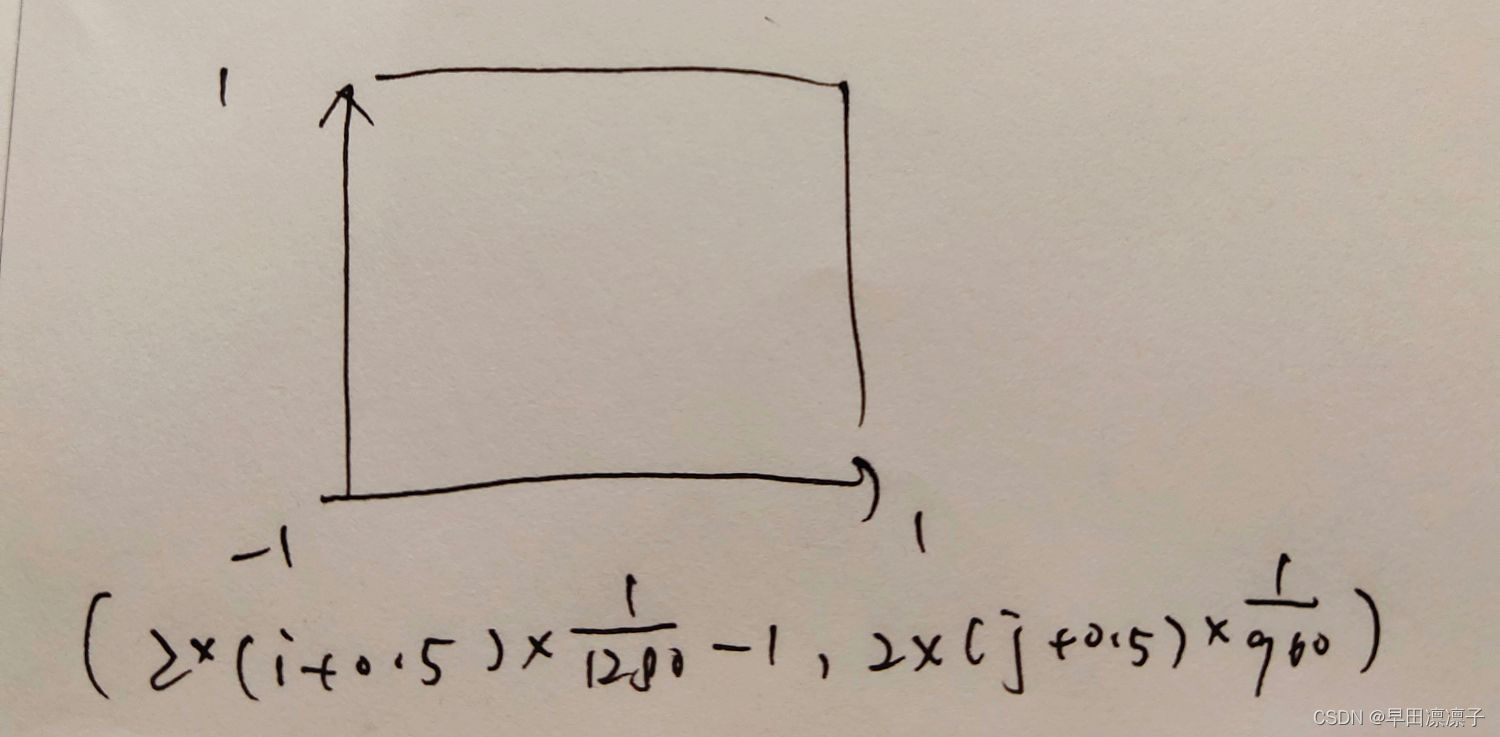 1
-1
1
(2×(i+0.5)×1/1280-1, 2×(j+0.5)×1/960)
CSDN @早田凛凛子